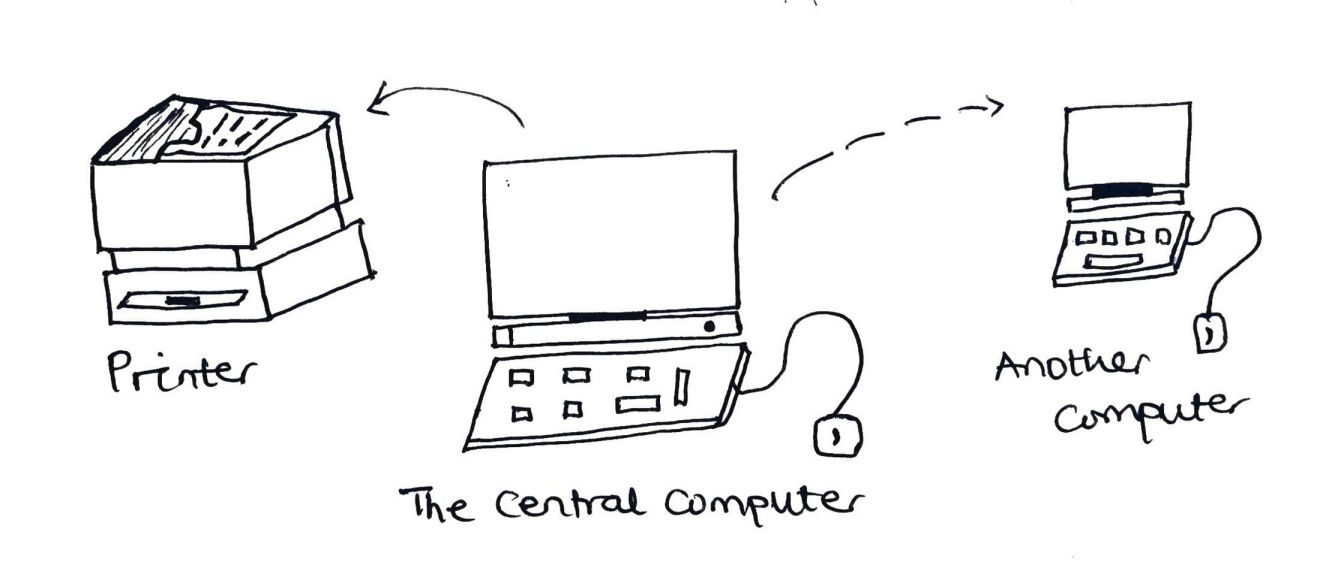 Printer
The Central Computer
Another
Computer